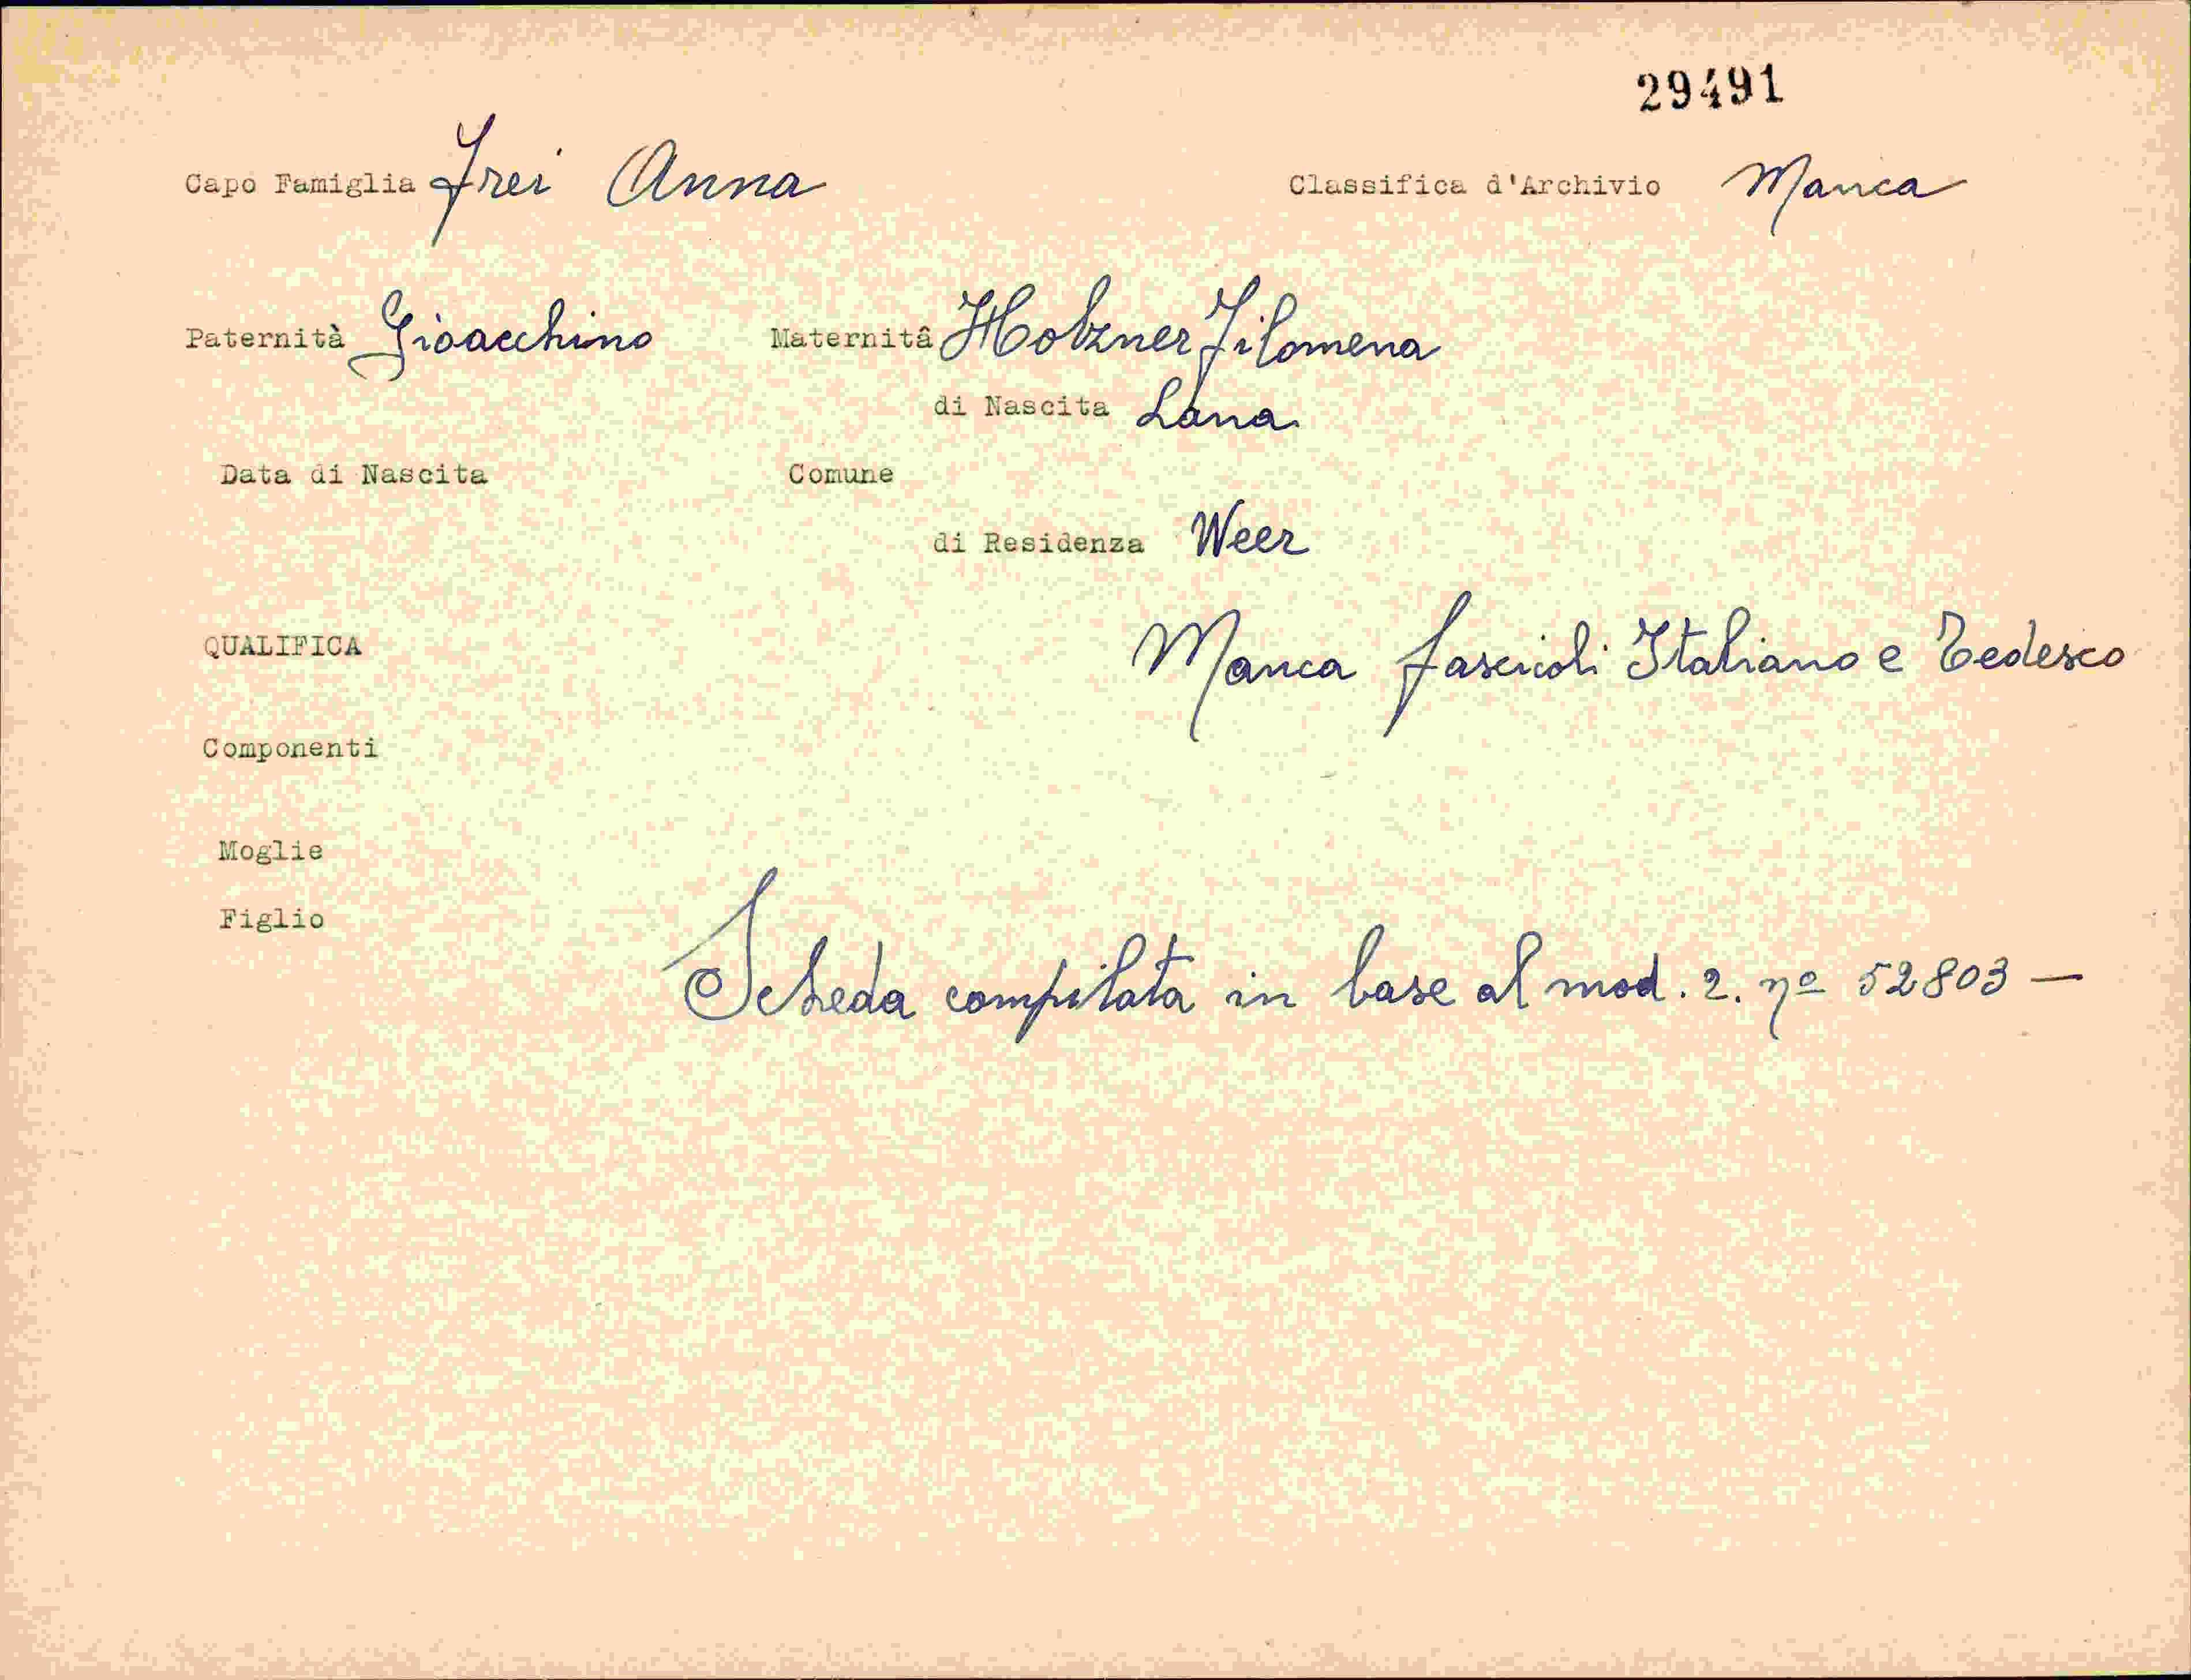 29491
Capo Famiglia Frei Anna Classifica d'Archivio Manca
Paternità Gioacchino Maternitâ Holzner Filomena
di Nascita Lana
Data di Nascita Comune
di Residenza Weer
QUALIFICA Manca fascicoli Italiano e Tedesco
Componenti
Moglie
Figlio
Scheda compilata in base al mod. 2. nº 52803 —